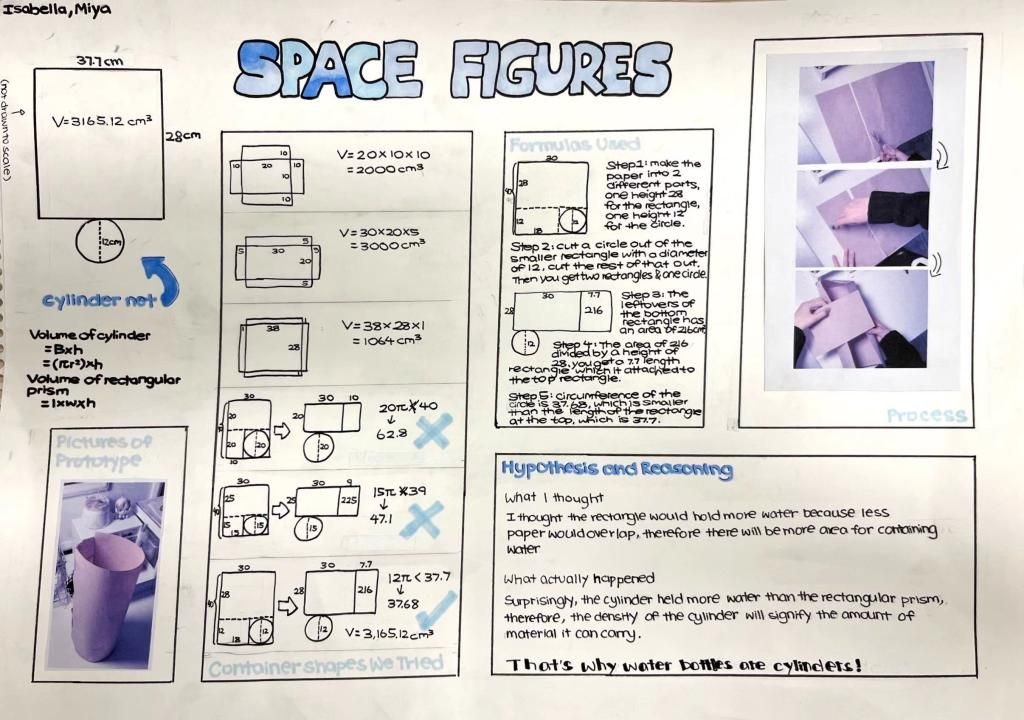 Isabella, Miya
SPACE FIGURES
37.7cm
(not drawn to scale)
V=3165.12 cm³
28cm
12cm
cylinder net
Volume of cylinder
=Bxh
=(πr²)xh
Volume of rectangular
prism
=lxwxh
Pictures of
Prototype
10
10 20 10
10
10
V=20x10x10
=2000cm³
5
5 30 5
20
5
V=30x20x5
=3000cm³
38
28
V=38x28x1
=1064cm³
30
20
20 20
10
30 10
20
20
20π 40
62.8
30
25
40
15 15
15
30 9
25 225
15
15π 39
47.1
30
28
40
12 12
18
30 7.7
28 216
12
12π < 37.7
37.68
V=3,165.12cm³
Container shapes We Tried
Formulas Used
30
28
40
12 12
18
Step1: make the
paper into 2
different parts,
one height 28
for the rectangle,
one height 12
for the circle.
Step 2: cut a circle out of the
smaller rectangle with a diameter
of 12, cut the rest of that out.
Then you get two rectangles & one circle.
30 7.7
28 216
12
Step 3: The
leftovers of
the bottom
rectangle has
an area of 216cm²
Step 4: The area of 216
divided by a height of
28, you get a 7.7 length
rectangle, which it attached to
the top rectangle.
Step 5: circumference of the
circle is 37.68, which is smaller
than the length of the rectangle
at the top, which is 37.7.
Process
Hypothesis and Reasoning
What I thought
I thought the rectangle would hold more water because less
paper would overlap, therefore there will be more area for containing
water
What actually happened
Surprisingly, the cylinder held more water than the rectangular prism,
therefore, the density of the cylinder will signify the amount of
material it can carry.
That's why water bottles are cylinders!